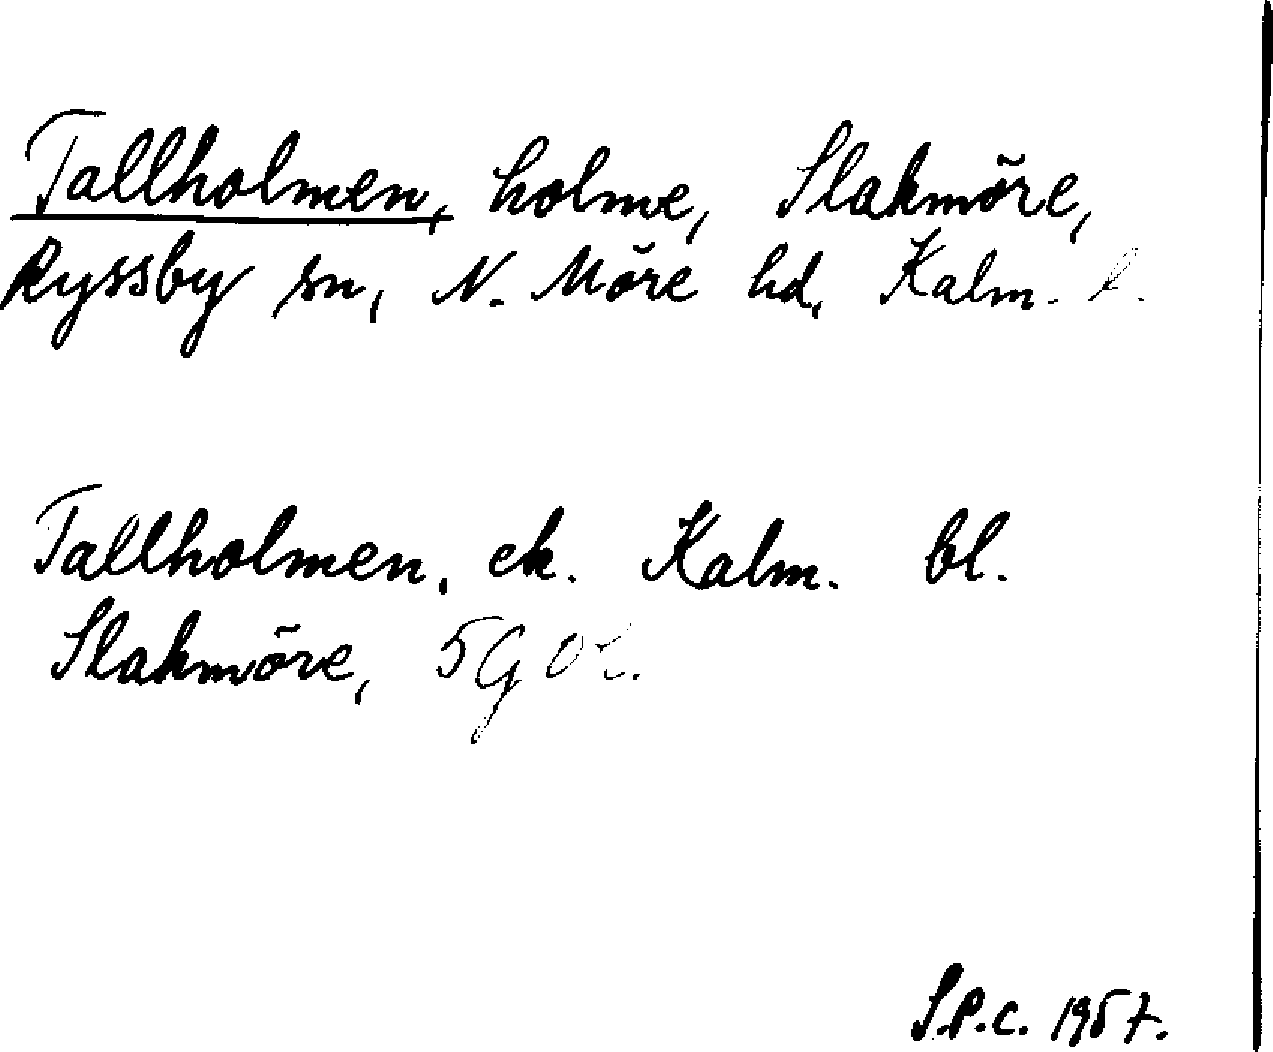 Tallholmen, holme, Slakmöre,
Ryssby sn, N. Möre hd, Kalm. l.
Tallholmen, ek. Kalm. bl.
Slakmöre, 5G
S.P.C. 1957.